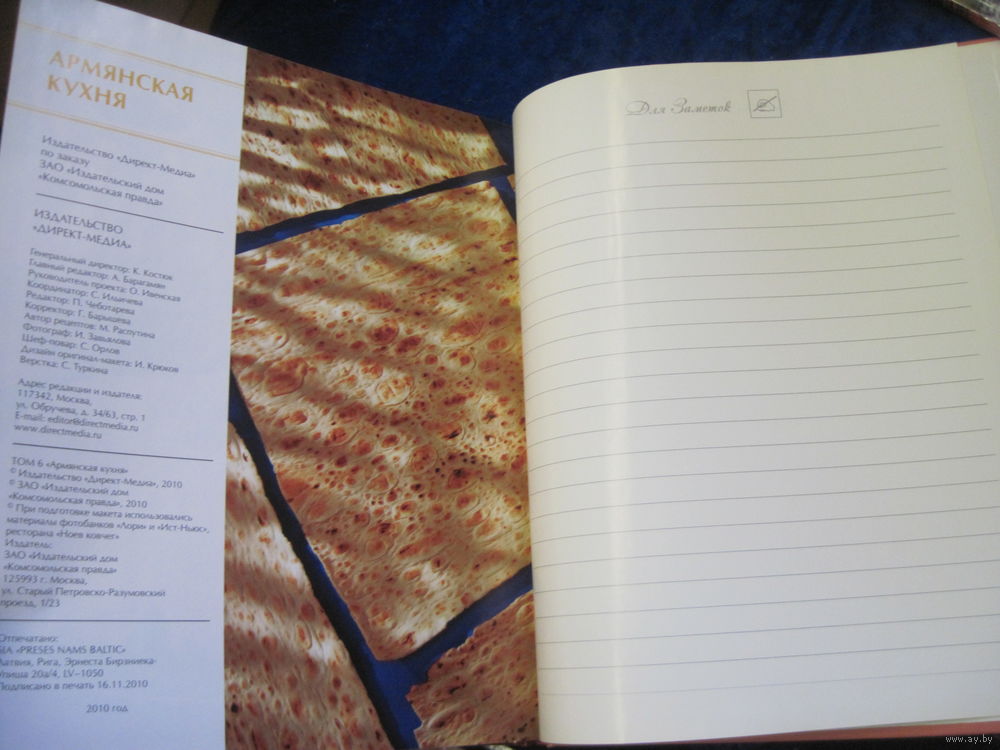 АРМЯНСКАЯ
КУХНЯ
Издательство «Директ-Медиа»
по заказу
ЗАО «Издательский дом
«Комсомольская правда»
ИЗДАТЕЛЬСТВО
«ДИРЕКТ-МЕДИА»
Генеральный директор: К. Костюк
Главный редактор: А. Барагамян
Руководитель проекта: О. Ивенская
Координатор: С. Ильичева
Редактор: П. Чеботарева
Корректор: Г. Барышева
Автор рецептов: М. Распутина
Фотограф: И. Завьялова
Шеф-повар: С. Орлов
Дизайн оригинал-макета: И. Крюков
Верстка: С. Туркина
Адрес редакции и издателя:
117342, Москва,
ул. Обручева, д. 34/63, стр. 1
E-mail: editor@directmedia.ru
www.directmedia.ru
ТОМ 6 «Армянская кухня»
© Издательство «Директ-Медиа», 2010
© ЗАО «Издательский дом
«Комсомольская правда», 2010
© При подготовке макета использовались
материалы фотобанков «Лори» и «Ист-Ньюс»,
ресторана «Ноев ковчег»
Издатель:
ЗАО «Издательский дом
«Комсомольская правда»
125993 г. Москва,
ул. Старый Петровско-Разумовский
проезд, 1/23
Отпечатано:
SIA «PRESES NAMS BALTIC»
Латвия, Рига, Эрнеста Бирзниека-
Упиша 20а/4, LV–1050
Подписано в печать 16.11.2010
2010 год
Для Заметок
www.ay.by